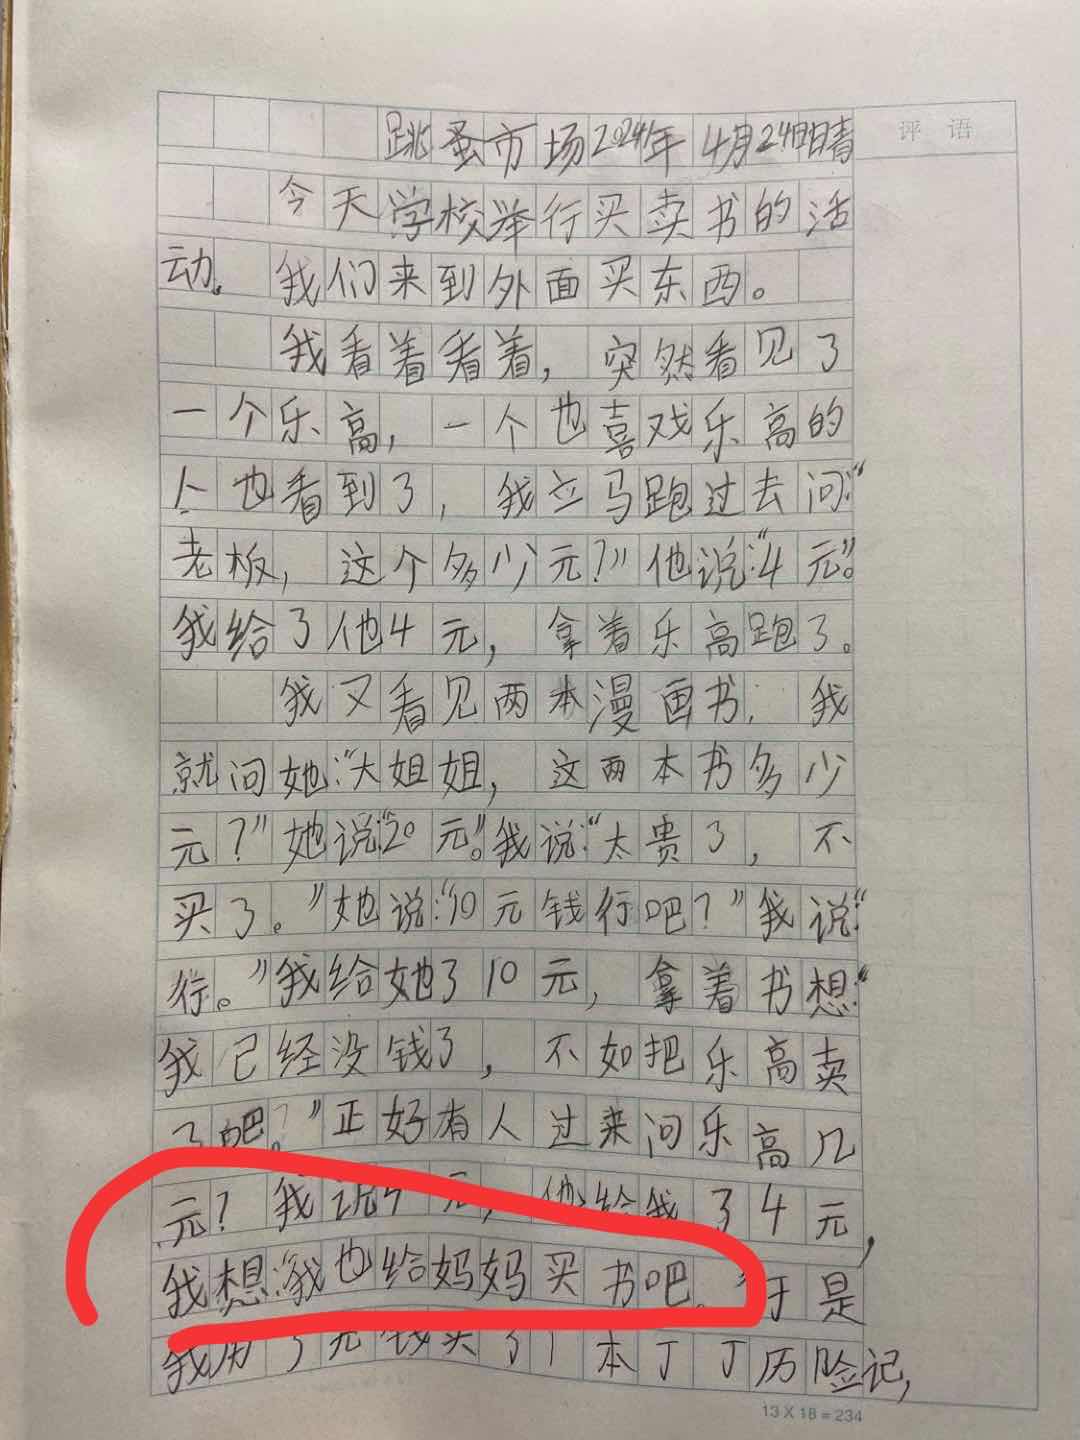 评语
跳蚤市场2024年4月24日晴
今天学校举行买卖书的活
动。我们来到外面买东西。
我看着看着，突然看见了
一个乐高，一个也喜戏乐高的
人也看到了，我立马跑过去问：“
老板，这个多少元？”他说：“4元”。
我给了他4元，拿着乐高跑了。
我又看见两本漫画书，我
就问她：“大姐姐，这两本书多少
元？”她说：“20元”。我说：“太贵了，不
买了。”她说：“10元钱行吧？”我说：“
行。”我给她了10元，拿着书想：“
我已经没钱了，不如把乐高卖
了吧？”正好有人过来问乐高几
元？我说4元，他给我了4元，
我想：“我也给妈妈买书吧。”于是
我用3元钱买了1本丁丁历险记，
13 X 18 = 234